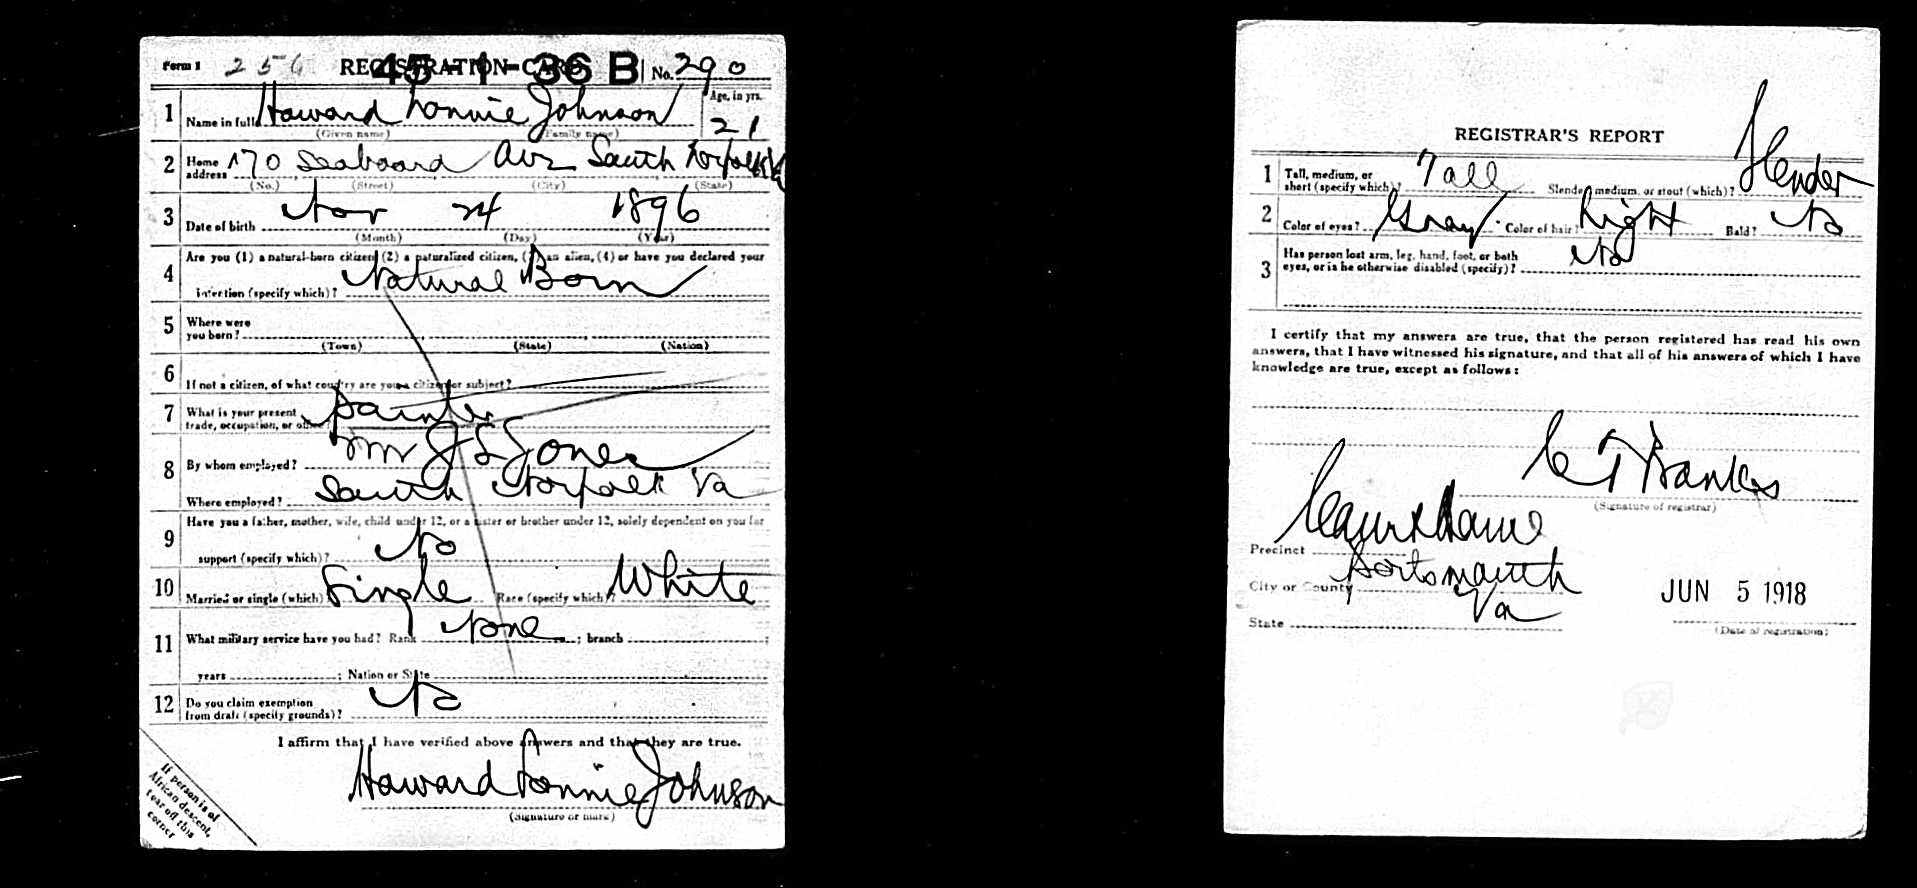 Form 1 256 REGISTRATION CARD No. 290
45-1-36 B
1 Name in full Haward Lonnie Johnson Age, in yrs. 21
(Given name) (Family name)
2 Home address 170 Seaboard Ave South Norfolk Va
(No.) (Street) (City) (State)
3 Date of birth Nov 24 1896
(Month) (Day) (Year)
Are you (1) a natural-born citizen, (2) a naturalized citizen, (3) an alien, (4) or have you declared your
4 intention (specify which)? Natural Born
5 Where were you born?
(Town) (State) (Nation)
6 If not a citizen, of what country are you a citizen or subject?
7 What is your present trade, occupation, or office? Painter
8 By whom employed? Mr J S Jones
Where employed? South Norfolk Va
9 Have you a father, mother, wife, child under 12, or a sister or brother under 12, solely dependent on you for
support (specify which)? No
10 Married or single (which)? Single Race (specify which)? White
11 What military service have you had? Rank None ; branch ;
years ; Nation or State
12 Do you claim exemption from draft (specify grounds)? No
I affirm that I have verified above answers and that they are true.
Haward Lonnie Johnson
(Signature or mark)
If person is of
African descent,
tear off this
corner
REGISTRAR'S REPORT
1 Tall, medium, or short (specify which)? Tall Slender, medium, or stout (which)? Slender
2 Color of eyes? Gray Color of hair? Light Bald? No
3 Has person lost arm, leg, hand, foot, or both
eyes, or is he otherwise disabled (specify)? No
I certify that my answers are true, that the person registered has read his own
answers, that I have witnessed his signature, and that all of his answers of which I have
knowledge are true, except as follows:
C T Banks
(Signature of registrar)
Precinct
City or County Portsmouth
State Va
JUN 5 1918
(Date of registration)